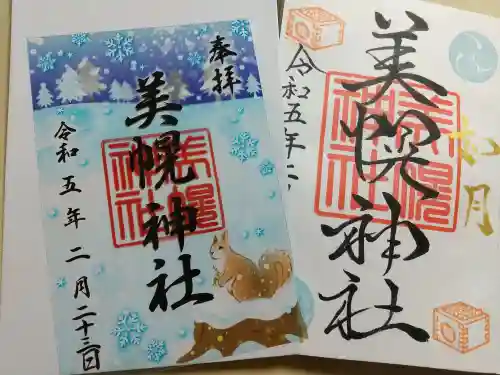 奉拝
美幌神社
令和五年二月二十三日
美幌神社
美幌神社
令和五年二
如月
美幌神社